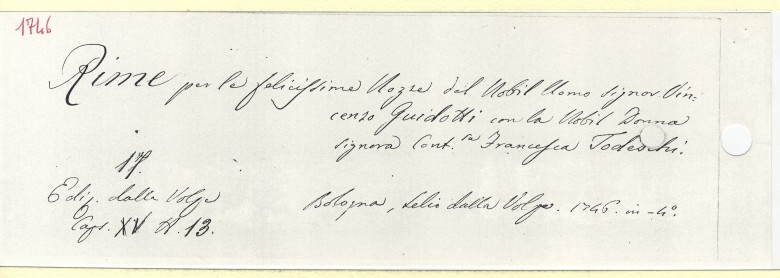 1746
Rime per le felicissime Nozze del Nobil Uomo signor Vin:
cenzo Guidotti con la Nobil Donna
signora Cont.sa Francesca Todeschi.
17.
Ediz. dalla Volpe
Caps. XV N. 13.
Bologna, Lelio dalla Volpe. 1746. in-4º.